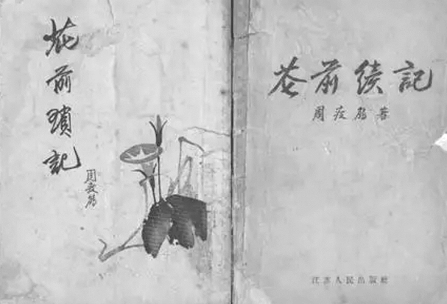 花前琐記
周瘦鹃
花前續記
周瘦鹃著
江苏人民出版社